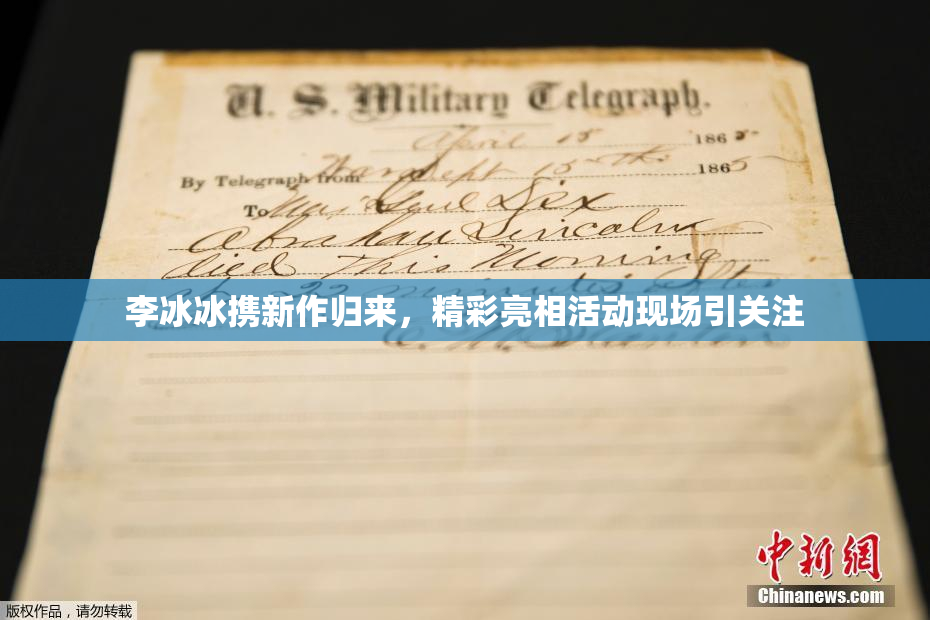 U. S. Military Telegraph.
April 15 1865
By Telegraph from War Dept 15th 1865
To Maj Genl Dix
Abraham Lincoln
died This Morning
22 minutes after
李冰冰携新作归来，精彩亮相活动现场引关注
中新网
Chinanews.com
版权作品，请勿转载